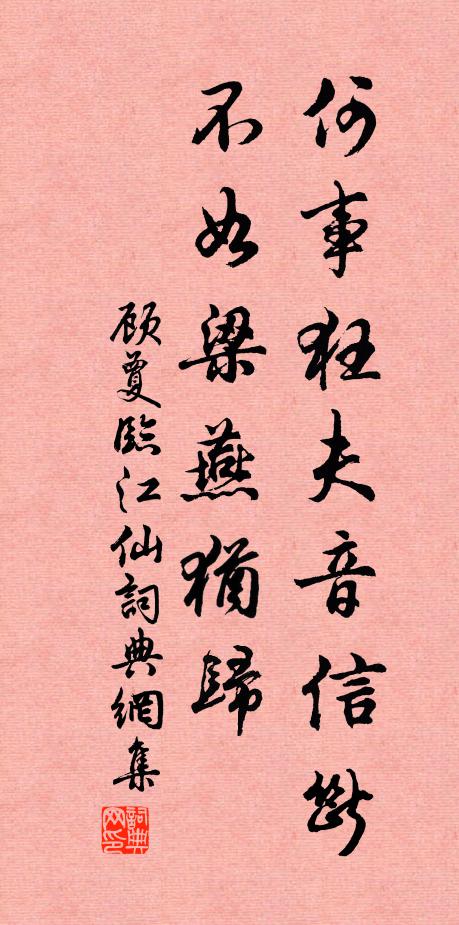 何事狂夫音信斷
不如梁燕猶歸
顧敻臨江仙詞典網集
詞典网印